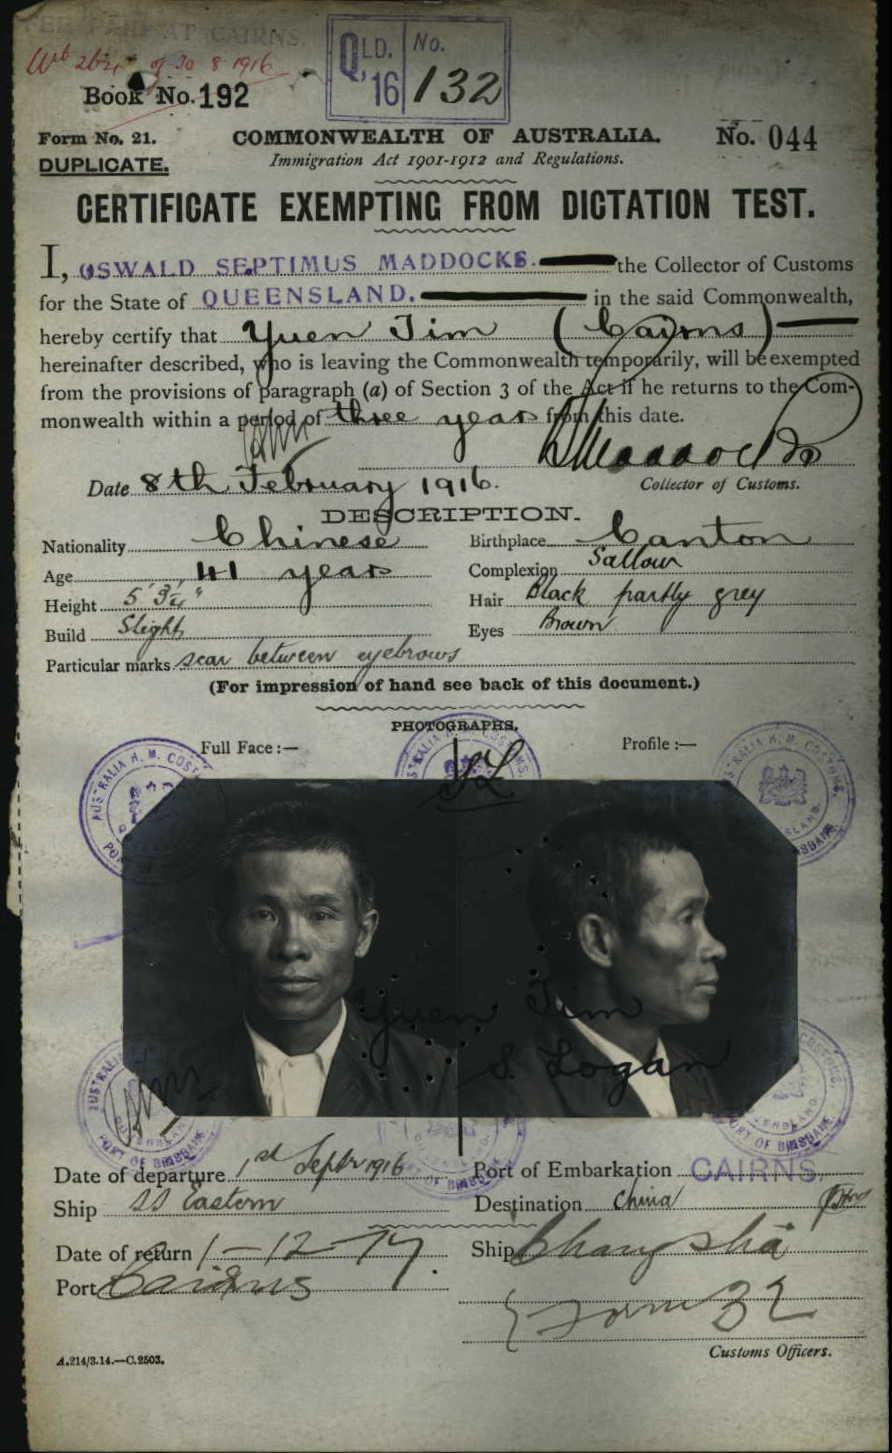 PER FEAR AT CAIRNS.
of 30 8 1916
QLD. '16 No. 132
Book No. 192
Form No. 21.
COMMONWEALTH OF AUSTRALIA.
No. 044
DUPLICATE.
Immigration Act 1901-1912 and Regulations.
CERTIFICATE EXEMPTING FROM DICTATION TEST.
I, OSWALD SEPTIMUS MADDOCKS. the Collector of Customs
for the State of QUEENSLAND. in the said Commonwealth,
hereby certify that Yuen Tim (Cairns)
hereinafter described, who is leaving the Commonwealth temporarily, will be exempted
from the provisions of paragraph (a) of Section 3 of the Act if he returns to the Com-
monwealth within a period of three years from this date.
Maddocks
Date 8th February 1916.
Collector of Customs.
DESCRIPTION.
Nationality Chinese
Birthplace Canton
Age 41 years
Complexion Sallow
Height 5' 3¼"
Hair Black partly grey
Build Slight
Eyes Brown
Particular marks scar between eyebrows
(For impression of hand see back of this document.)
PHOTOGRAPHS.
Full Face :—
Profile :—
AUSTRALIA H. M. CUSTOMS
PORT OF BRISBANE
Yuen Tim
S. Logan
Date of departure 1st Septr 1916
Port of Embarkation CAIRNS.
Ship SS Eastern
Destination China
Date of return 1-12-17
Ship Changsha
Port Cairns
Customs Officers.
A.214/3.14.—C.2503.